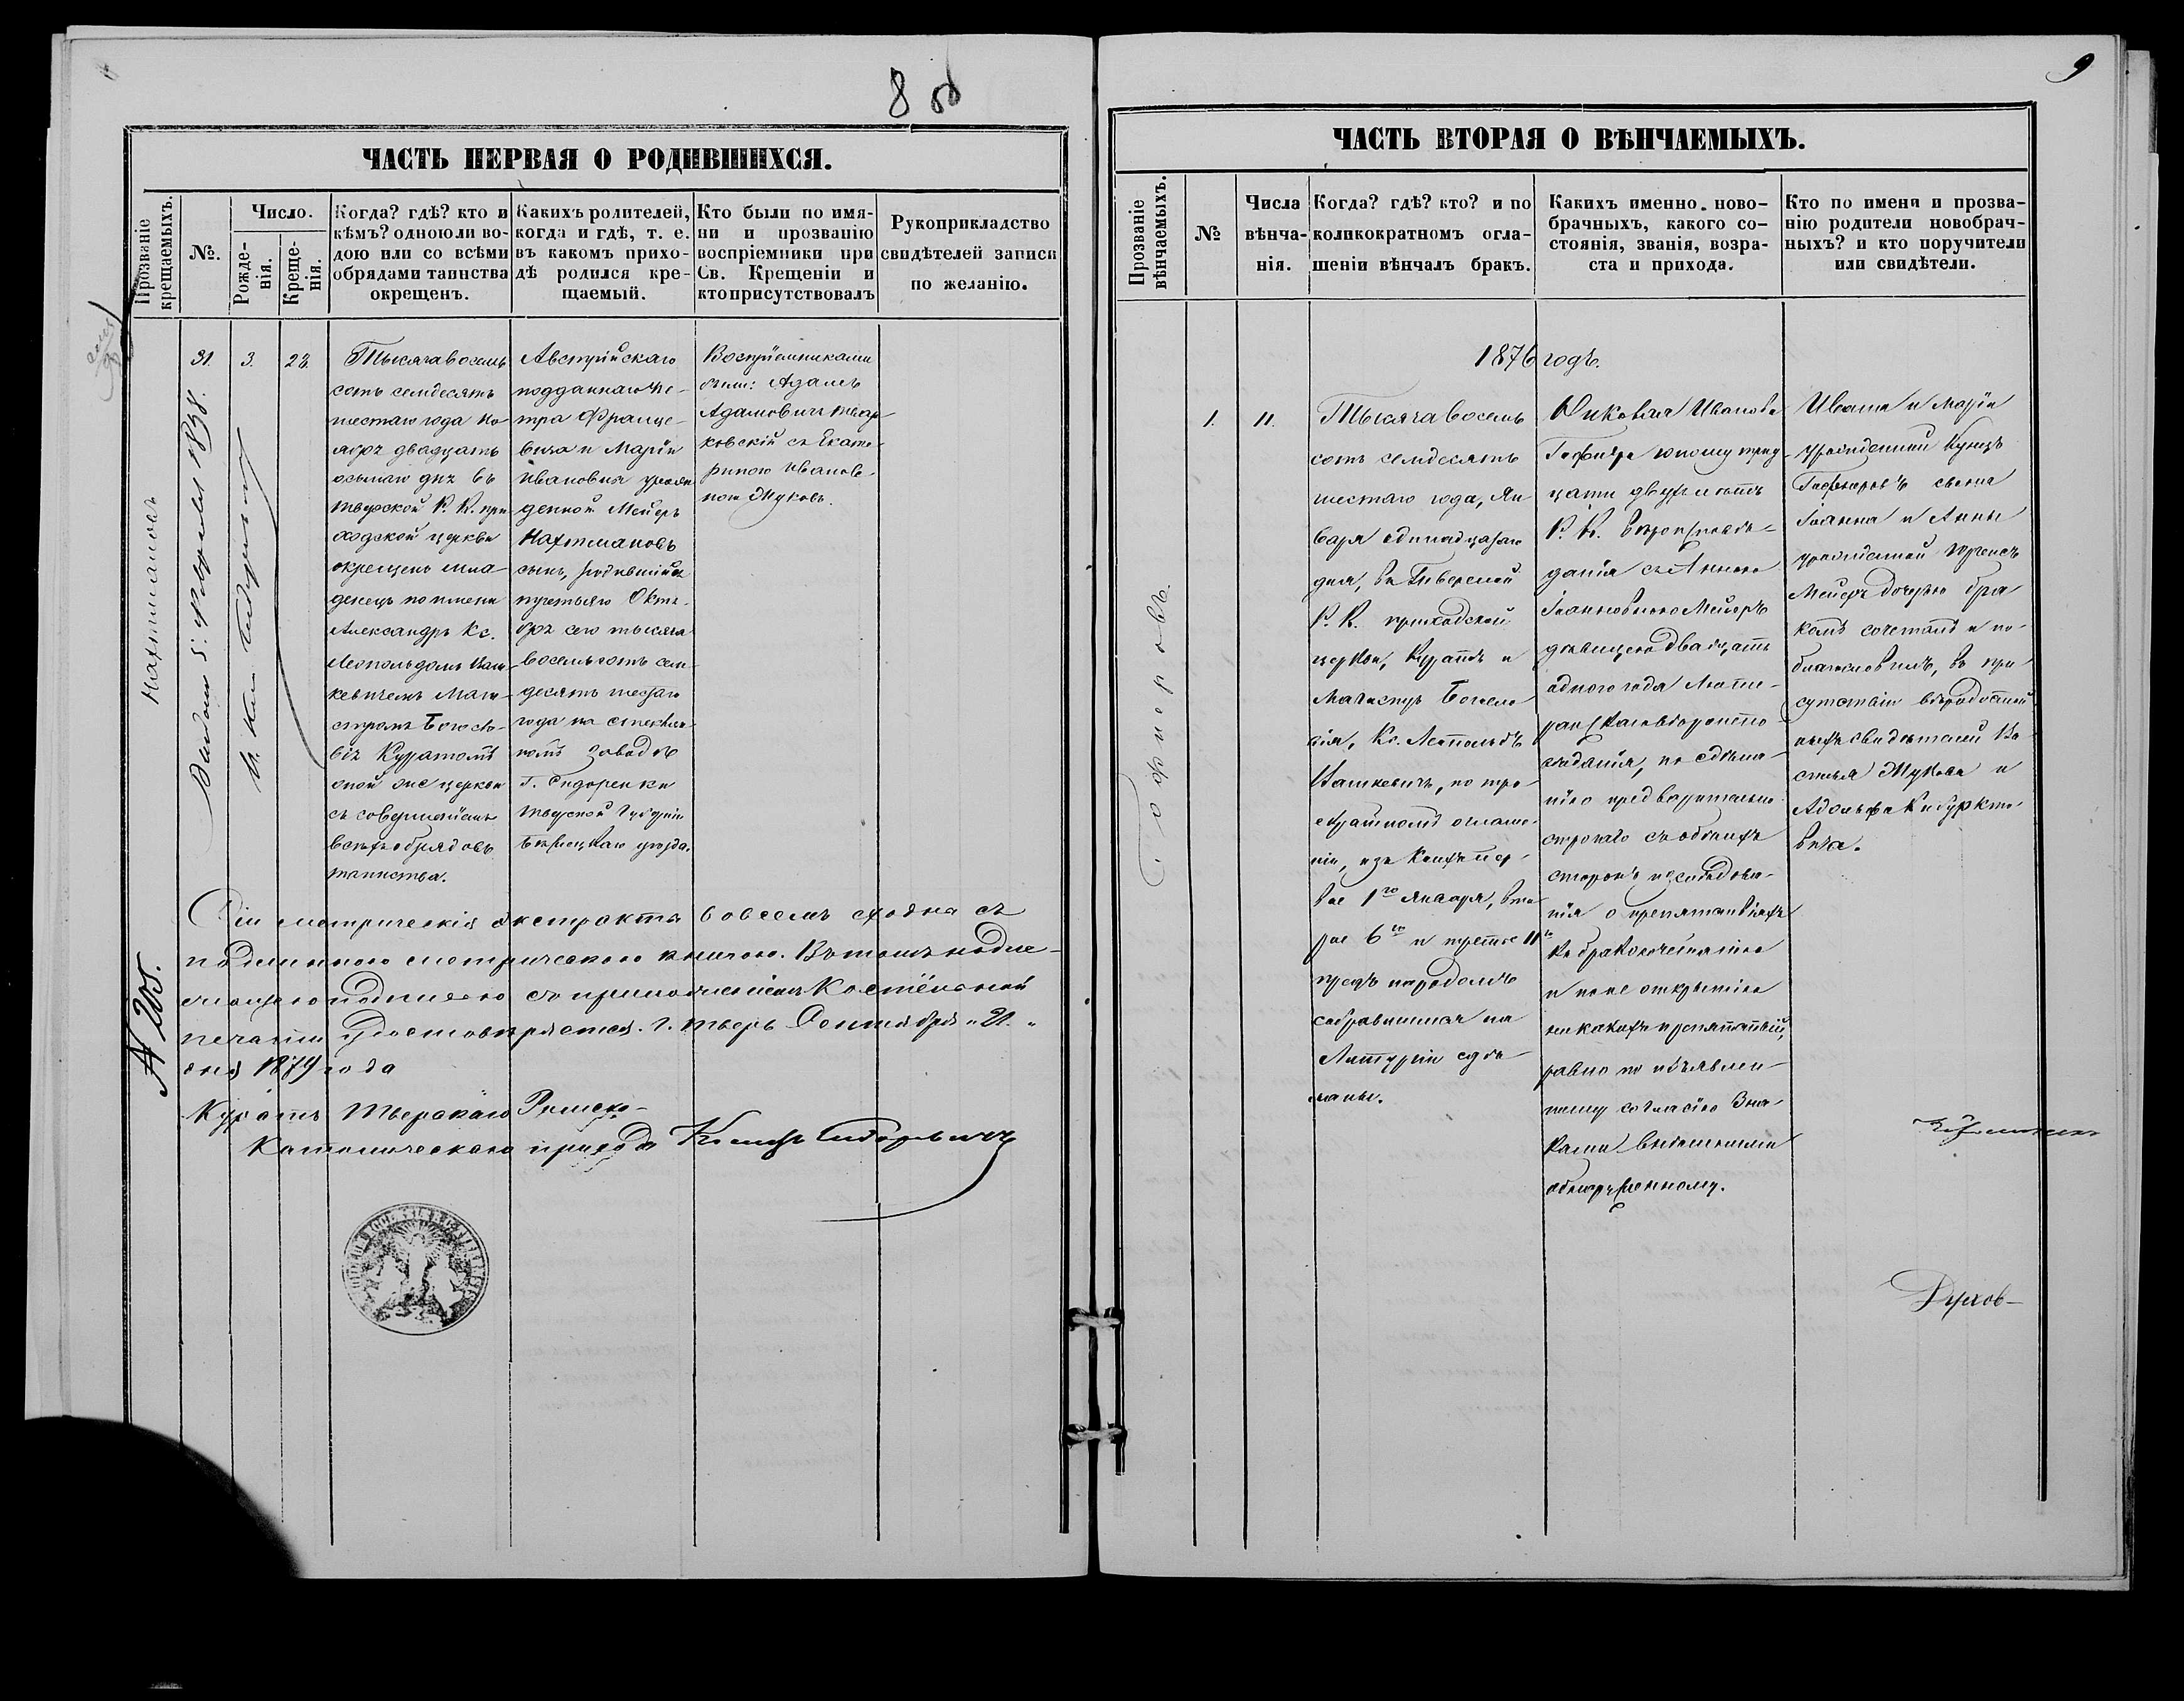 8 об
ЧАСТЬ ПЕРВАЯ О РОДИВШИХСЯ.
Прозваніе крещаемыхъ.
№.
Число.
Рожде-
нія.
Креще-
нія.
Когда? гдѣ? кто и
кѣмъ? одноюли во-
дою или со всѣми
обрядами таинства
окрещенъ.
Какихъ родителей,
когда и гдѣ, т. е.
въ какомъ прихо-
дѣ родился кре-
щаемый.
Кто были по имя-
ни и прозванію
воспріемники при
Св. Крещеніи и
кто присутствовалъ
Рукоприкладство
свидѣтелей записи
по желанію.
Нахтмановъ
31.
3.
28.
Тысяча восемь
сотъ семдесятъ
шестаго года Но-
ября двадцать
осьмаго дня въ
Тверской Р. К. при
ходской церкви
окрещенъ мла-
денецъ по имени
Александръ Кс.
Леопольдомъ
кевичемъ Маги-
стромъ Богосло-
вія Куратомъ
оной же церкви
съ совершеніемъ
всѣхъ обрядовъ
таинства.
Австрійскаго
подданнаго Пе-
тра Франце-
вича и Маріи
Ивановны урож
денной Мейеръ
Нахтмановъ
сынъ, родившійся
третьяго Октя-
бря сего тысяча
восемьсотъ сем-
десятъ шестаго
года на стеклян-
номъ заводѣ
Г. Сидоренки
Тверской Губерніи
Бѣжецкаго уѣзда.
Воспріемниками
были: Адамъ
Адамовичъ Твар-
ковскій съ Екате-
риною Иванов-
ною Жуковъ.
Сіи метрическія экстракты во всемъ сходны съ
подлинною метрическою книгою. Въ томъ подле-
жащею подписью съ приложеніемъ Костёльной
печати удостовѣряется. г. Тверь Сентября „21.„
дня 1879 года
№ 205.
Куратъ Тверскаго Римско-
Католическаго прихода
9
ЧАСТЬ ВТОРАЯ О ВѢНЧАЕМЫХЪ.
Прозваніе вѣнчаемыхъ.
№
Числа
вѣнча-
нія.
Когда? гдѣ? кто? и по
коликократномъ огла-
шеніи вѣнчалъ бракъ.
Каихъ именно ново-
брачныхъ, какого со-
стоянія, званія, возра-
ста и прихода.
Кто по имени и прозва-
нію родители новобрач-
ныхъ? и кто поручители
или свидѣтели.
1876 годъ.
Гофнеровъ.
1.
11.
Тысяча восемь
сотъ семдесятъ
шестаго года, Ян
варя одинадцатаго
дня, въ Тверской
Р. К. приходской
церкви, Куратъ и
Магистръ Богосло
вія, Кс. Леопольдъ
по тро
екратномъ оглаше-
ніи, изъ коихъ пер-
вое 1го Января, вто
рое 6го и третье 11го
предъ народомъ
собравшимся на
Литургіи сдѣ-
ланы.
Николая Иванова
Гофнера юношу трид-
цати двухъ лѣтъ
Р. К. вѣроисповѣ-
данія съ Анною
Іоанновною Мейеръ
дѣвицею двадцать
одного года Люте-
ранскаго вѣроиспо-
вѣданія, по сдѣла-
нію предварительно
строгаго съ обоихъ
сторонъ изслѣдова-
нія о препятствіяхъ
къ бракосочетанію
и по не открытію
никакихъ препятствій,
равно по изъявлен-
ному согласію Зна-
ками внѣшними
обнаруженному.
Ивана и Маріи
урожденной Кунцъ
Гофнеровъ сына
Іоанна и Анны
урожденной
Мейеръ дочерью бра
комъ сочеталъ и по-
благословилъ, въ при
сутствіи вѣродостой
ныхъ свидѣтелей Ва-
силья Жукова и
Адольфа
вича.
Духов-